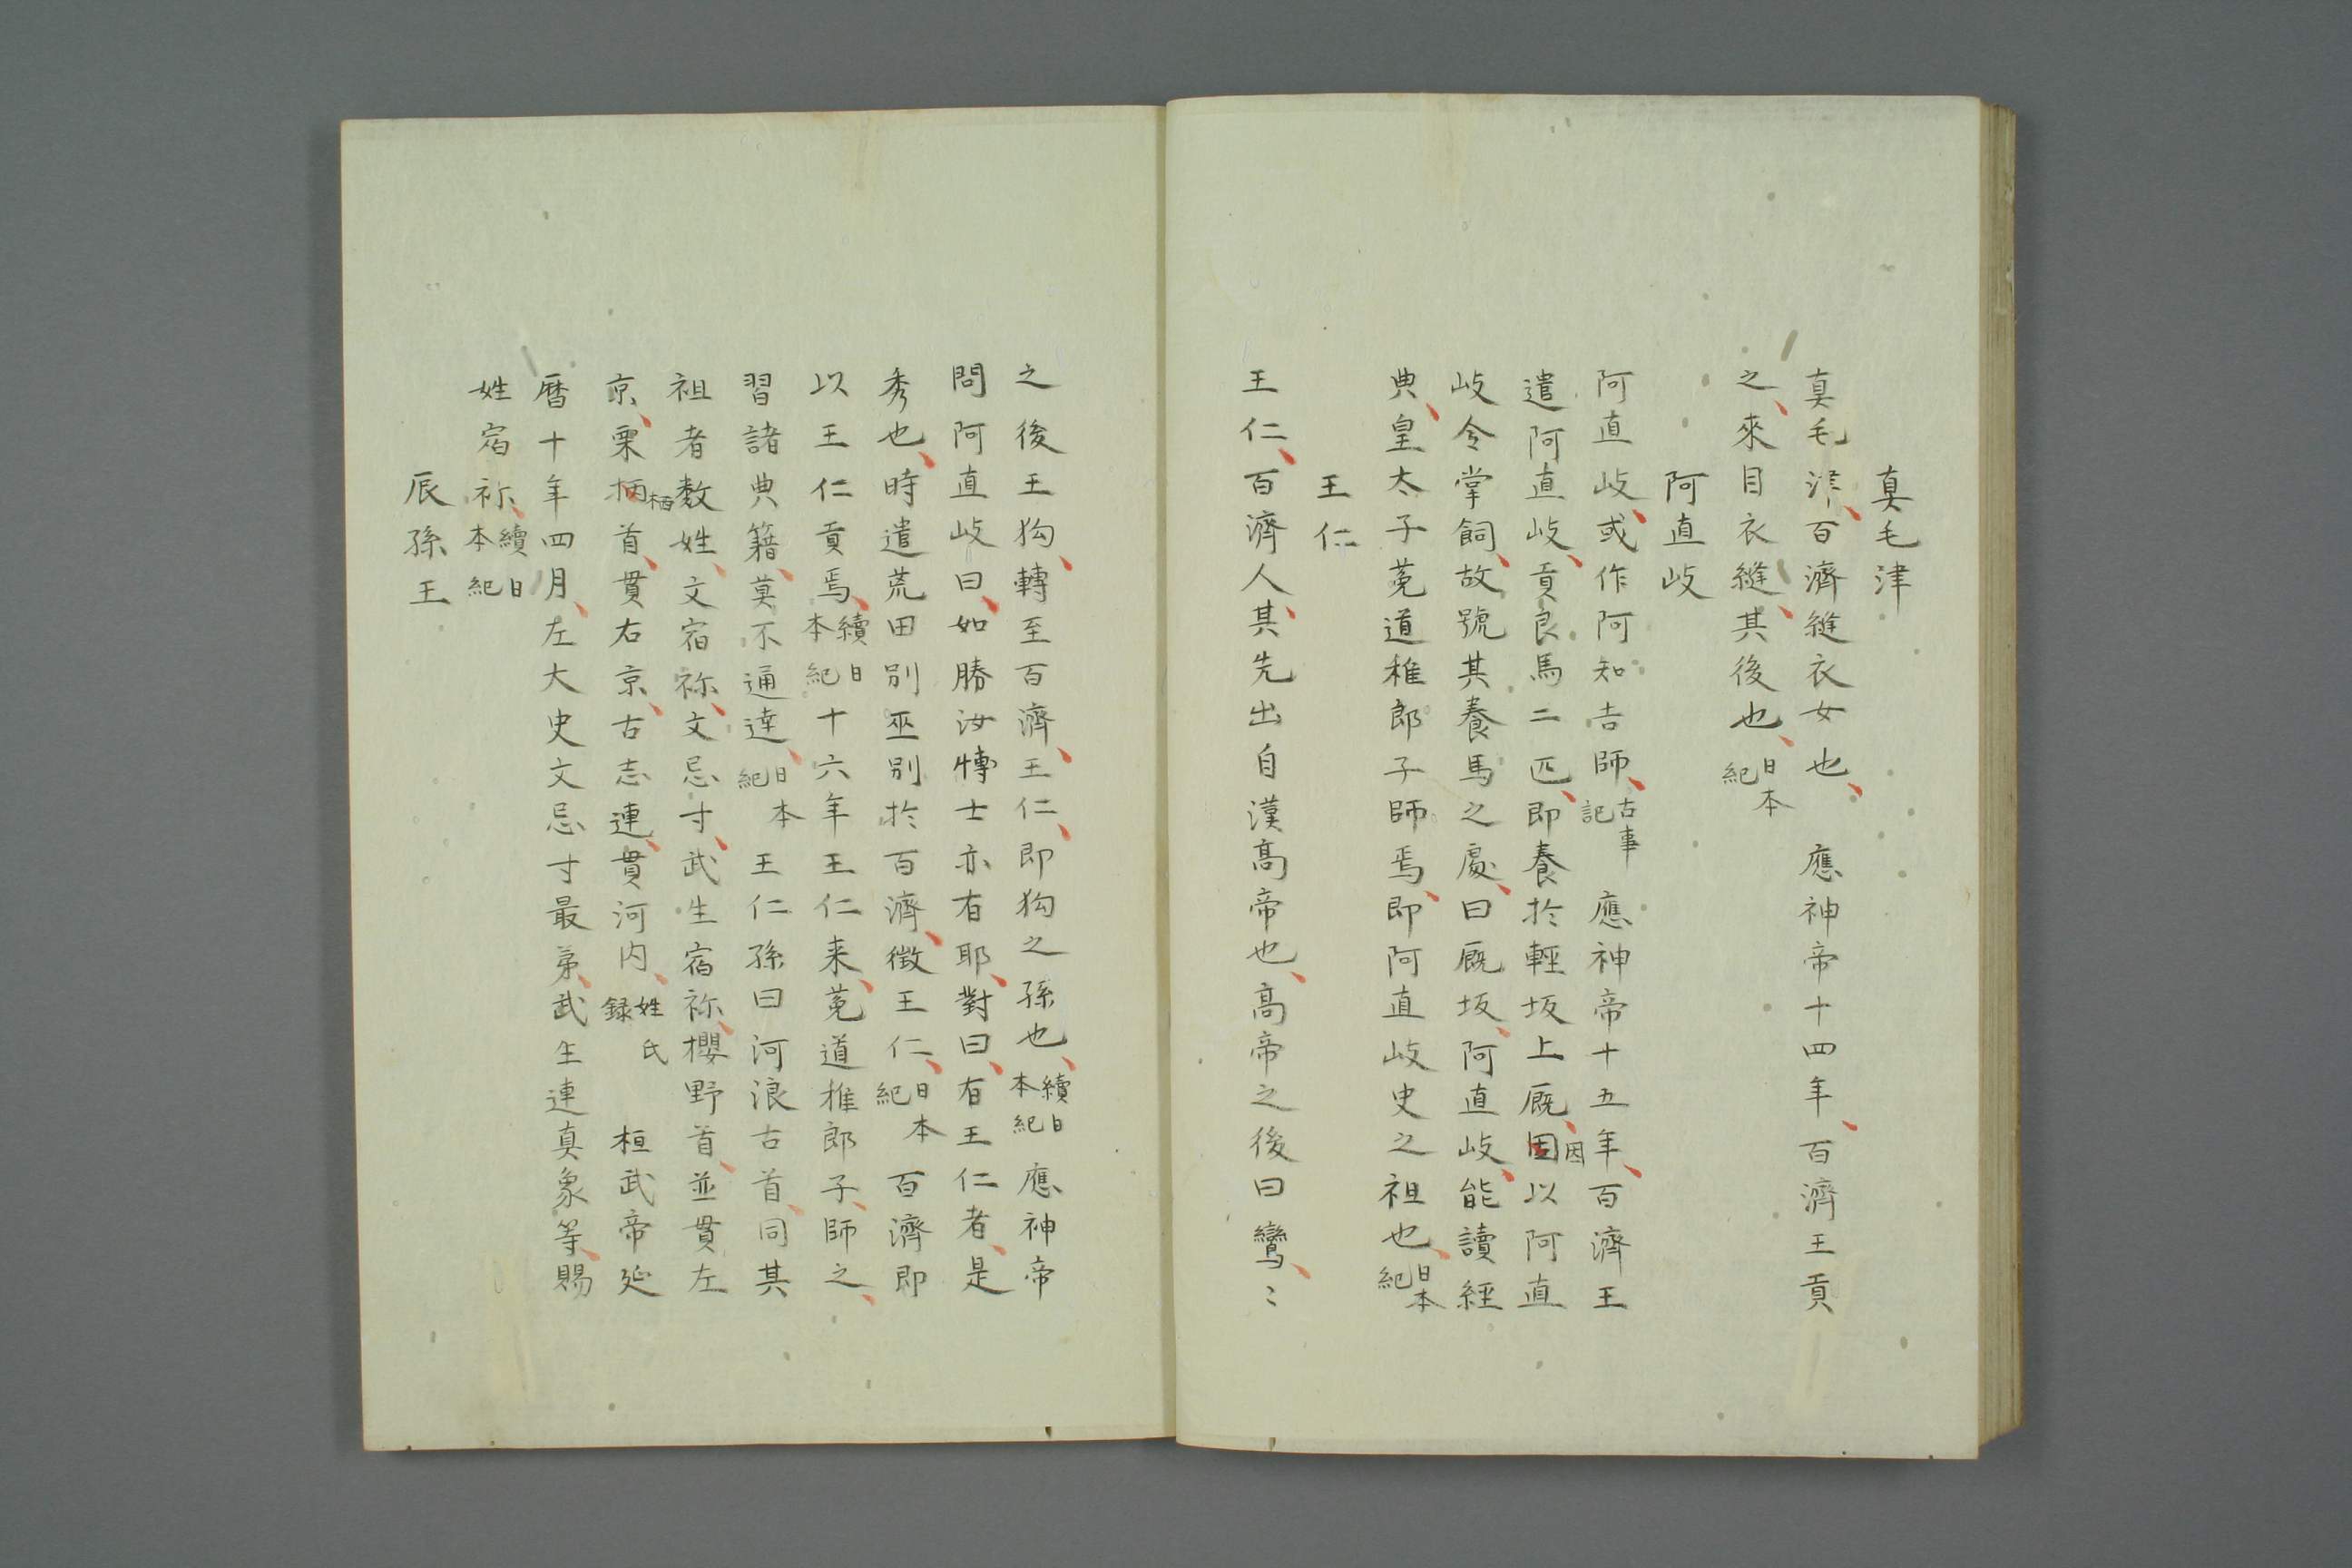 真毛津
真毛津百濟縫衣女也　應神帝十四年百濟王貢
之來目衣縫其後也日本紀
阿直岐
阿直岐或作阿知吉師古事記　應神帝十五年百濟王
遣阿直岐貢良馬二匹即養於輕坂上厩固因以阿直
岐令掌飼故號其養馬之處曰厩坂阿直岐能讀經
典皇太子菟道稚郎子師焉即阿直岐史之祖也日本紀
王仁
王仁百濟人其先出自漢高帝也高帝之後曰鸞〻
之後王狗轉至百濟王仁即狗之孫也續日本紀　應神帝
問阿直岐曰如勝汝博士亦有耶對曰有王仁者是
秀也時遣荒田別巫別於百濟徵王仁日本紀百濟即
以王仁貢焉續日本紀十六年王仁来菟道稚郎子師之
習諸典籍莫不通達日本紀　王仁孫曰河浪古首同其
祖者数姓文宿祢文忌寸武生宿祢櫻野首並貫左
京栗柄栖首貫右京古志連貫河内姓氏録　桓武帝延
暦十年四月左大史文忌寸最弟武生連真象等賜
姓宿祢續日本紀
辰孫王